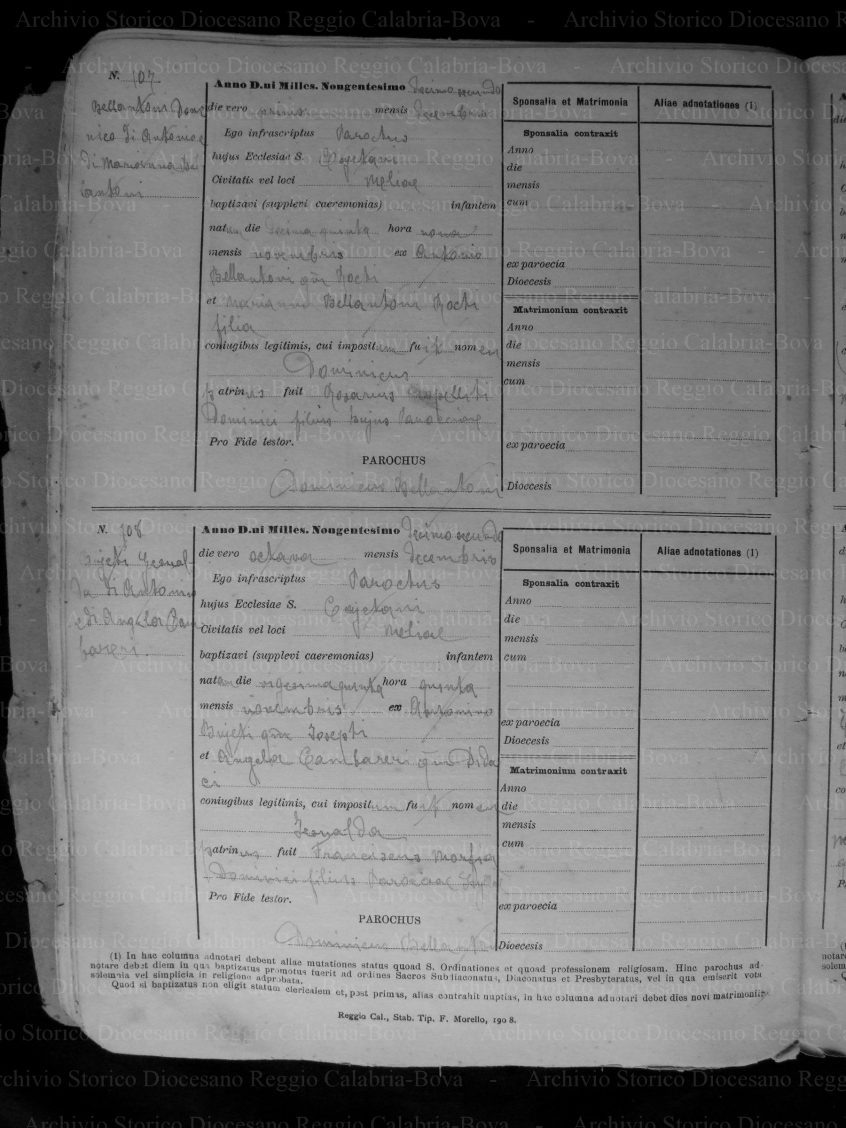 Archivio Storico Diocesano Reggio Calabria-Bova
N. 107
Bellantoni Domenico di Antonio e
di Marianna Bellantoni
Anno D.ni Milles. Nongentesimo decimo secundo
die vero primo mensis decembris
Ego infrascriptus Parochus
hujus Ecclesiae S. Cajetani
Civitatis vel loci Meliae
baptizavi (supplevi caeremonias) infantem
natum die decima quinta hora nona
mensis novembris ex Antonio
Bellantoni qm Rocti
et Marianna Bellantoni Rocti
filia
coniugibus legitimis, cui impositum fuit nomen
Dominicus
patrinus fuit Rosarius
Dominici filius hujus Paroeciae
Pro Fide testor.
PAROCHUS
Dominicus Bellantoni
Sponsalia et Matrimonia
Aliae adnotationes (1)
Sponsalia contraxit
Anno
die
mensis
cum
ex paroecia
Dioecesis
Matrimonium contraxit
Anno
die
mensis
cum
ex paroecia
Dioecesis
N. 108
Leonal-
da di Antonino
e di Angela Cam
bareri.
Anno D.ni Milles. Nongentesimo decimo secundo
die vero octava mensis decembris
Ego infrascriptus Parochus
hujus Ecclesiae S. Cajetani
Civitatis vel loci Meliae
baptizavi (supplevi caeremonias) infantem
natam die vigesima quinta hora quinta
mensis novembris ex Antonino
qm Josephi
et Angela Cambareri qm Dida
ci
coniugibus legitimis, cui impositum fuit nomen
Leonalda
patrinus fuit Franciscus
Dominici filius Paroeciae
Pro Fide testor.
PAROCHUS
Dominicus Bellantoni
Sponsalia et Matrimonia
Aliae adnotationes (1)
Sponsalia contraxit
Anno
die
mensis
cum
ex paroecia
Dioecesis
Matrimonium contraxit
Anno
die
mensis
cum
ex paroecia
Dioecesis
(1) In hac columna adnotari debent aliae mutationes status quoad S. Ordinationes et quoad professionem religiosam. Hinc parochus ad-
notare debet diem in qua baptizatus promotus fuerit ad ordines Sacros Subdiaconatus, Diaconatus et Presbyteratus, vel in qua emiserit vota
solemnia vel simplicia in religione adprobata.
Quod si baptizatus non eligit statum clericalem et, post primas, alias contrahit nuptias, in hac columna adnotari debet dies novi matrimonii.
Reggio Cal., Stab. Tip. F. Morello, 1908.